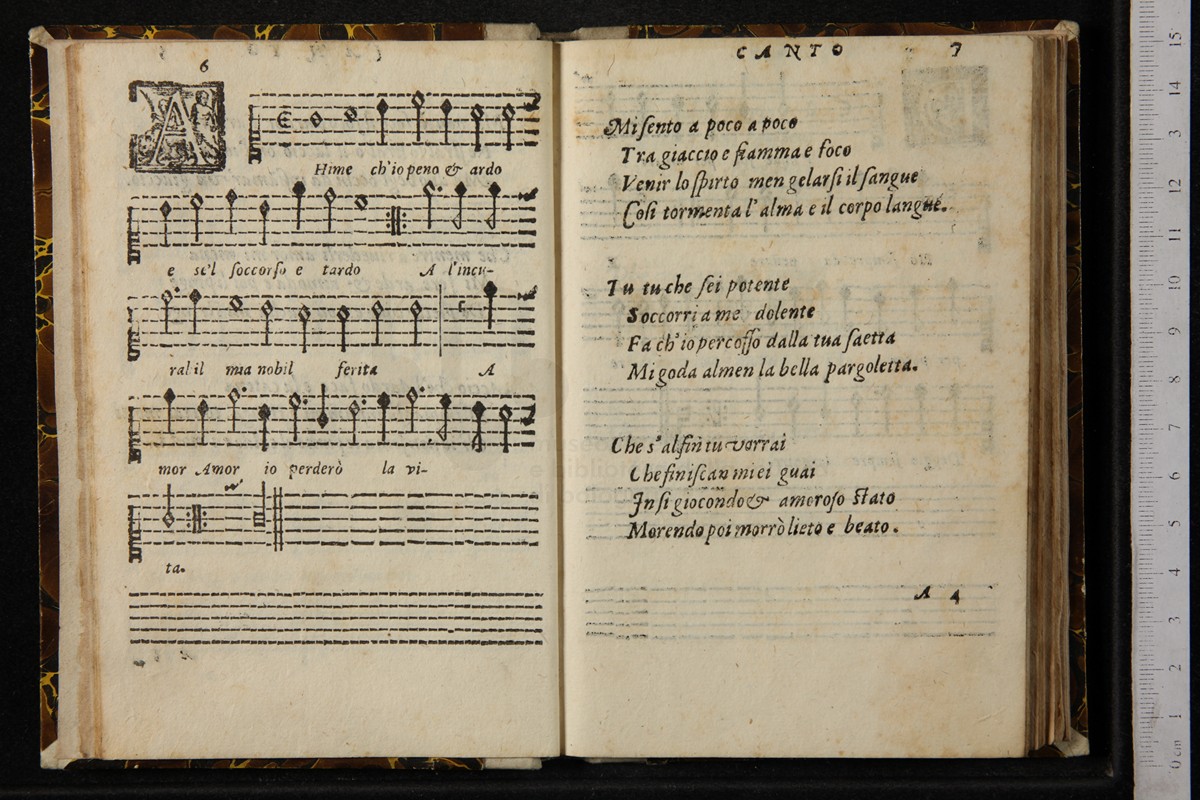 6
A
Hime ch'io peno & ardo
e se'l soccorso e tardo A l'incu-
rabil mia nobil ferita A
mor Amor io perderò la vi-
ta.
CANTO 7
Mi sento a poco a poco
Tra giaccio e fiamma e foco
Venir lo spirto men gelarsi il sangue
Cosi tormenta l'alma e il corpo langue.
Tu tu che sei potente
Soccorri a me dolente
Fa ch'io percosso dalla tua saetta
Mi goda almen la bella pargoletta.
Che s'alfin tu vorrai
Che finiscan miei guai
In si giocondo & amoroso stato
Morendo poi morrò lieto e beato.
A 4
0 cm 1 2 3 4 5 6 7 8 9 10 11 12 13 14 15